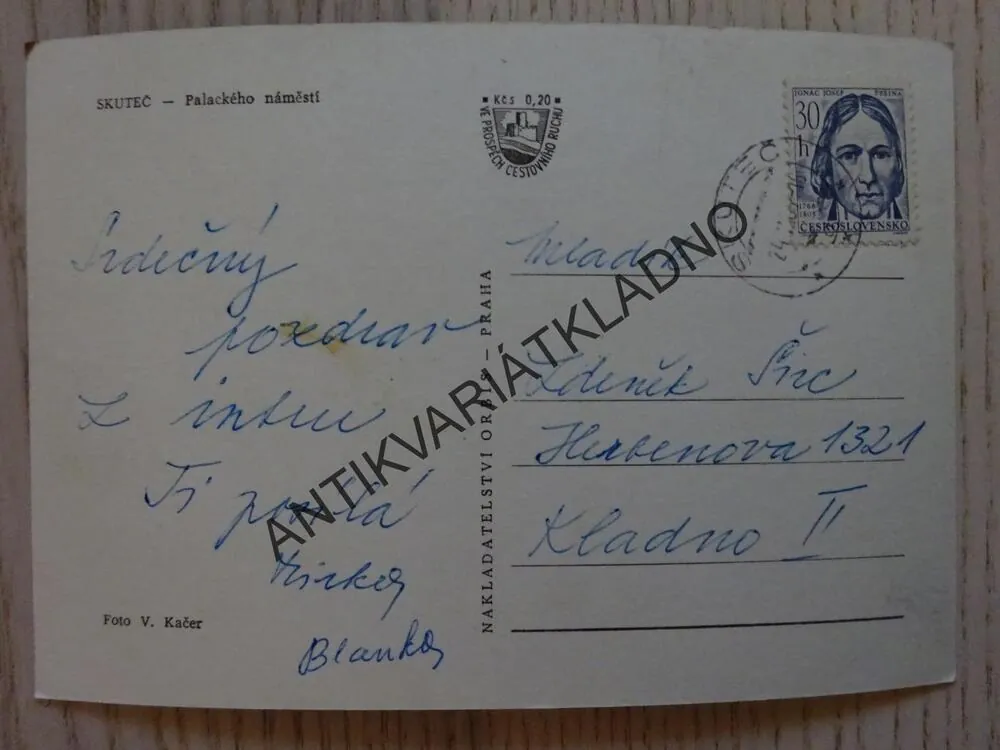 SKUTEČ — Palackého náměstí
Kčs 0,20
VE PROSPĚCH CESTOVNÍHO RUCHU
IGNÁC JOSEF PEŠINA
30
h
1766
1808
ČESKOSLOVENSKO
SKUTEČ
Srdečný
pozdrav
Z intru
Ti posílá
Mirka
Blanka
Foto V. Kačer
NAKLADATELSTVÍ ORBIS — PRAHA
Zdeněk Šírc
Herbenova 1321
Kladno II
ANTIKVARIÁTKLADNO